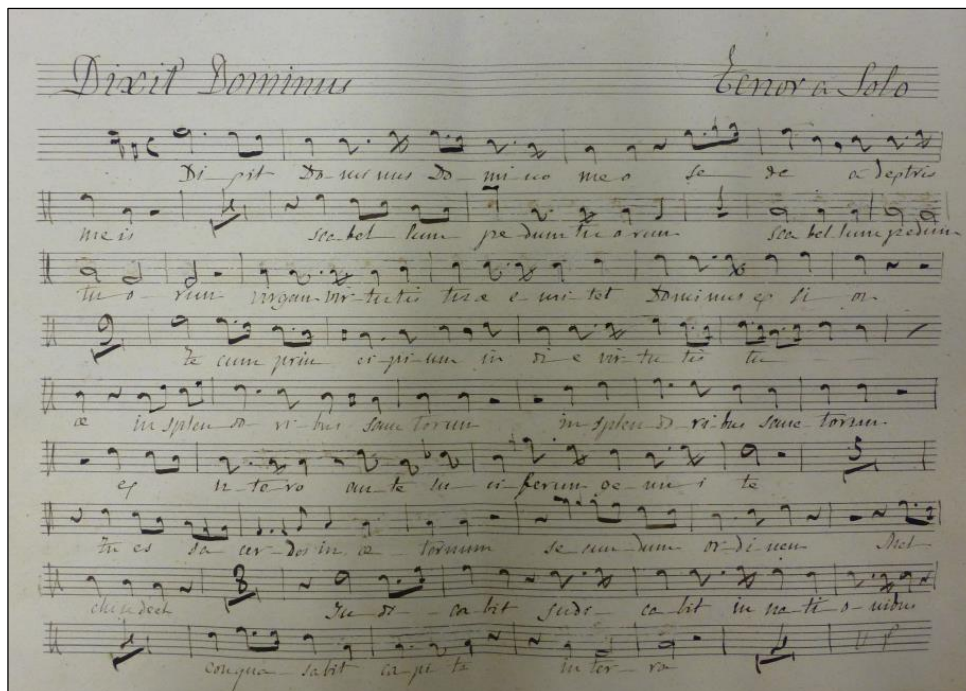 Dixit Dominus Tenor a Solo
Di-xit Do mi nus Do-mi-no me o se de a dextris
me is sca bel lum pe dum tu o rum sca bel lum pedum
tu-o-rum virgam vir-tu-tis tu-e e-mi-tet Dominus ex si on
9
Te cum prin ci-pi-um in di-e vir-tu tis tu
æ in splen-do-ri-bus sanc torum in splen-do-ri bus sanc-torum
ex u-te-ro an-te lu-ci-ferum ge-nu-i te 5
tu es sa cer-dos in æ-ternum se cun-dum or-di-nem Mel
chisedech 8 Ju di-ca-bit ca-bit in na-ti-o-nibus
conqua-sabit ca-pi-ta in ter-ra